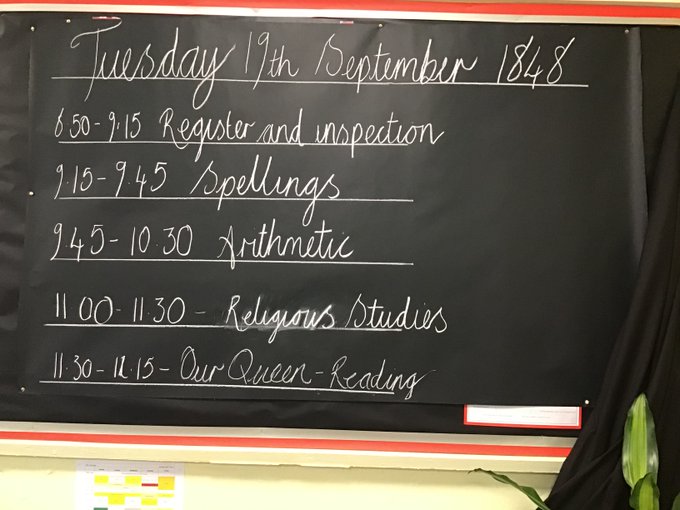 Tuesday 19th September 1848
8 50 - 9:15 Register and inspection
9.15 - 9.45 Spellings
9.45 - 10.30 Arithmetic
11 00 - 11.30 - Religious Studies
11.30 - 12.15 - Our Queen - Reading